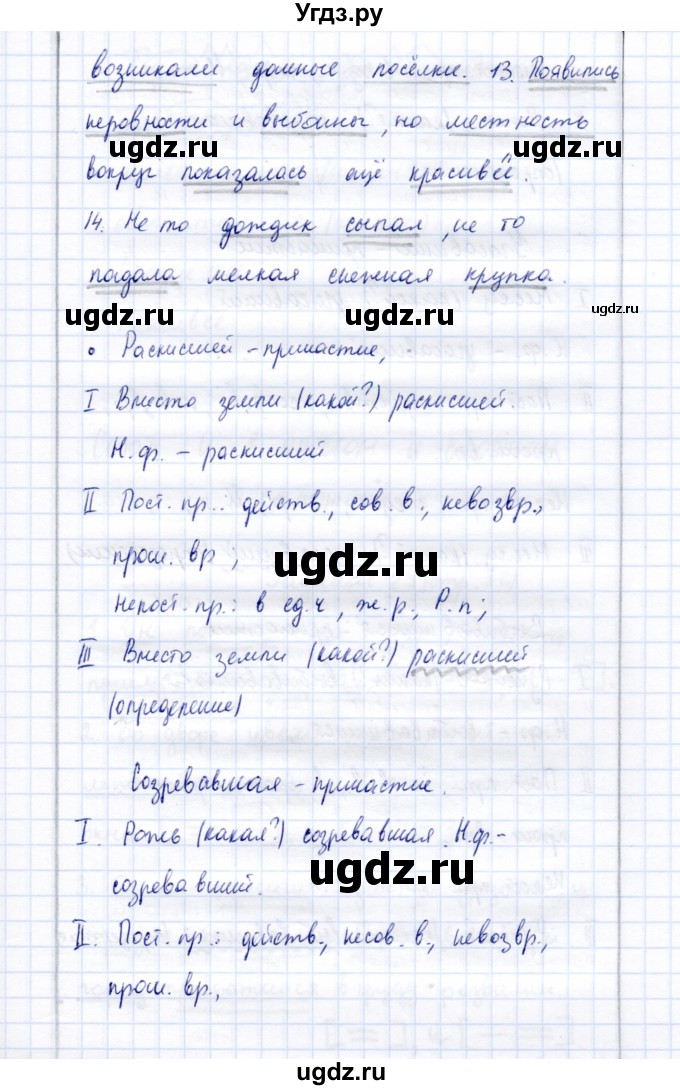 Угдз.ру
возникали дачные посёлки. 13. Появились
неровности и выбоины, но местность
ugdz.ru ugdz.ru
вокруг показалась ещё красивее.
14. Не то дождик сыпал, не то
падала мелкая снежная крупка.
ugdz.ru ugdz.ru ugdz.ru
• Раскисшей - причастие,
I Вместо земли (какой?) раскисшей.
Н.ф. - раскисший
II Пост. пр.: действ., сов. в., невозвр.,
прош. вр.,
ugdz.ru
Непост. пр.: в ед.ч, ж.р., Р.п;
III Вместо земли (какой?) раскисшей
(определение)
Созревавшая - причастие.
I. Рожь (какая?) созревавшая. Н.ф.-
созревавший.
ugdz.ru
II. Пост. пр.: действ., несов. в., невозвр.,
прош. вр.,
ugdz.ru